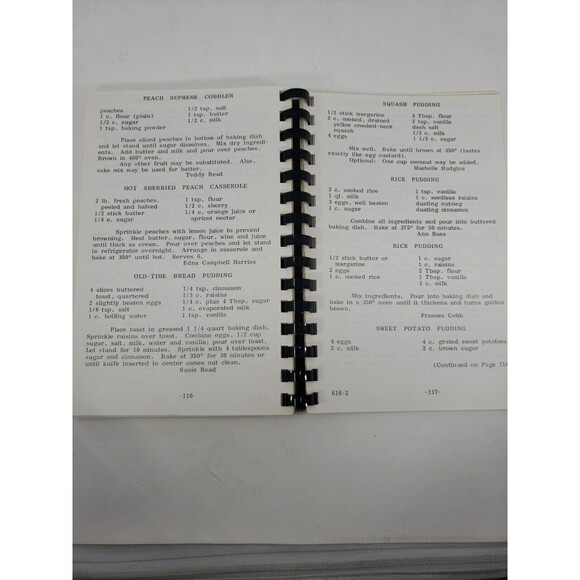 PEACH SUPREME COBBLER
peaches 1/2 tsp. salt
1 c. flour (plain) 1 tsp. butter
1/2 c. sugar 1/2 c. milk
1 tsp. baking powder
Place sliced peaches in bottom of baking dish
and let stand until sugar dissolves. Mix dry ingredi-
ents. Add butter and milk and pour over peaches.
Brown in 400° oven.
Any other fruit may be substituted. Also,
cake mix may be used for batter.
Teddy Read
HOT SHERRIED PEACH CASSEROLE
2 lb. fresh peaches, 1 tsp. flour
peeled and halved 1/2 c. sherry
1/2 stick butter 1/4 c. orange juice or
1/4 c. sugar apricot nectar
Sprinkle peaches with lemon juice to prevent
browning. Heat butter, sugar, flour, wine and juice
until thick as cream. Pour over peaches and let stand
in refrigerator overnight. Arrange in casserole and
bake at 350° until hot. Serves 6.
Edna Campbell Harriss
OLD-TIME BREAD PUDDING
4 slices buttered 1/4 tsp. cinnamon
toast, quartered 1/3 c. raisins
2 slightly beaten eggs 1/4 c. plus 4 Tbsp. sugar
1/8 tsp. salt 1 c. evaporated milk
1 c. boiling water 1 tsp. vanilla
Place toast in greased 1 1/4-quart baking dish.
Sprinkle raisins over toast. Combine eggs, 1/2 cup
sugar, salt, milk, water and vanilla; pour over toast.
Let stand for 10 minutes. Sprinkle with 4 tablespoons
sugar and cinnamon. Bake at 350° for 30 minutes or
until knife inserted in center comes out clean.
Susie Read
-116-
SQUASH PUDDING
1/2 stick margarine 2 Tbsp. flour
2 c. cooked, drained 1 tsp. vanilla
yellow crooked-neck dash salt
squash 1 c. milk
4 eggs 1 1/2 c. sugar
Mix well. Bake until brown at 350° (tastes
exactly like egg custard).
Optional: One cup coconut may be added.
Hudgins
RICE PUDDING
2 c. cooked rice 1 tsp. vanilla
1 qt. milk 1 c. seedless raisins
3 eggs, well beaten dusting nutmeg
1 c. sugar dusting cinnamon
Combine all ingredients and pour into buttered
baking dish. Bake at 375° for 50 minutes.
Ann Ross
RICE PUDDING
1/2 stick butter or 1 c. sugar
margarine 1 c. raisins
2 eggs 2 Tbsp. flour
1 c. cooked rice 1 Tbsp. vanilla
1 c. milk
Mix ingredients. Pour into baking dish and
bake in a 350° oven until it thickens and turns golden
brown.
Frances Cobb
SWEET POTATO PUDDING
4 eggs 4 c. grated sweet potatoes
3 c. milk 2 c. brown sugar
(Continued on Page 118
616-2 -117-